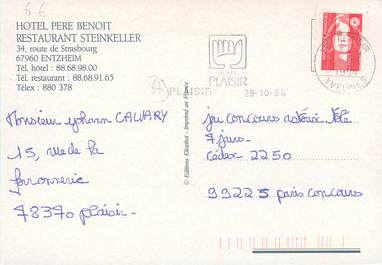 6 €
HOTEL PERE BENOIT
RESTAURANT STEINKELLER
34, route de Strasbourg
67960 ENTZHEIM
Tél. hôtel : 88.68.98.00
Tél. restaurant : 88.68.91.65
Télex : 880 378
© Editions Elliphot - Imprimé en France
PLAISIR
YVELINES
PLAISIR 29-10-94
Monsieur yohann CALVARY
15, rue de la
ferronnerie
78370 plaisir.
jeu concours
7 jours.
Cédex 2250
99225 paris concours